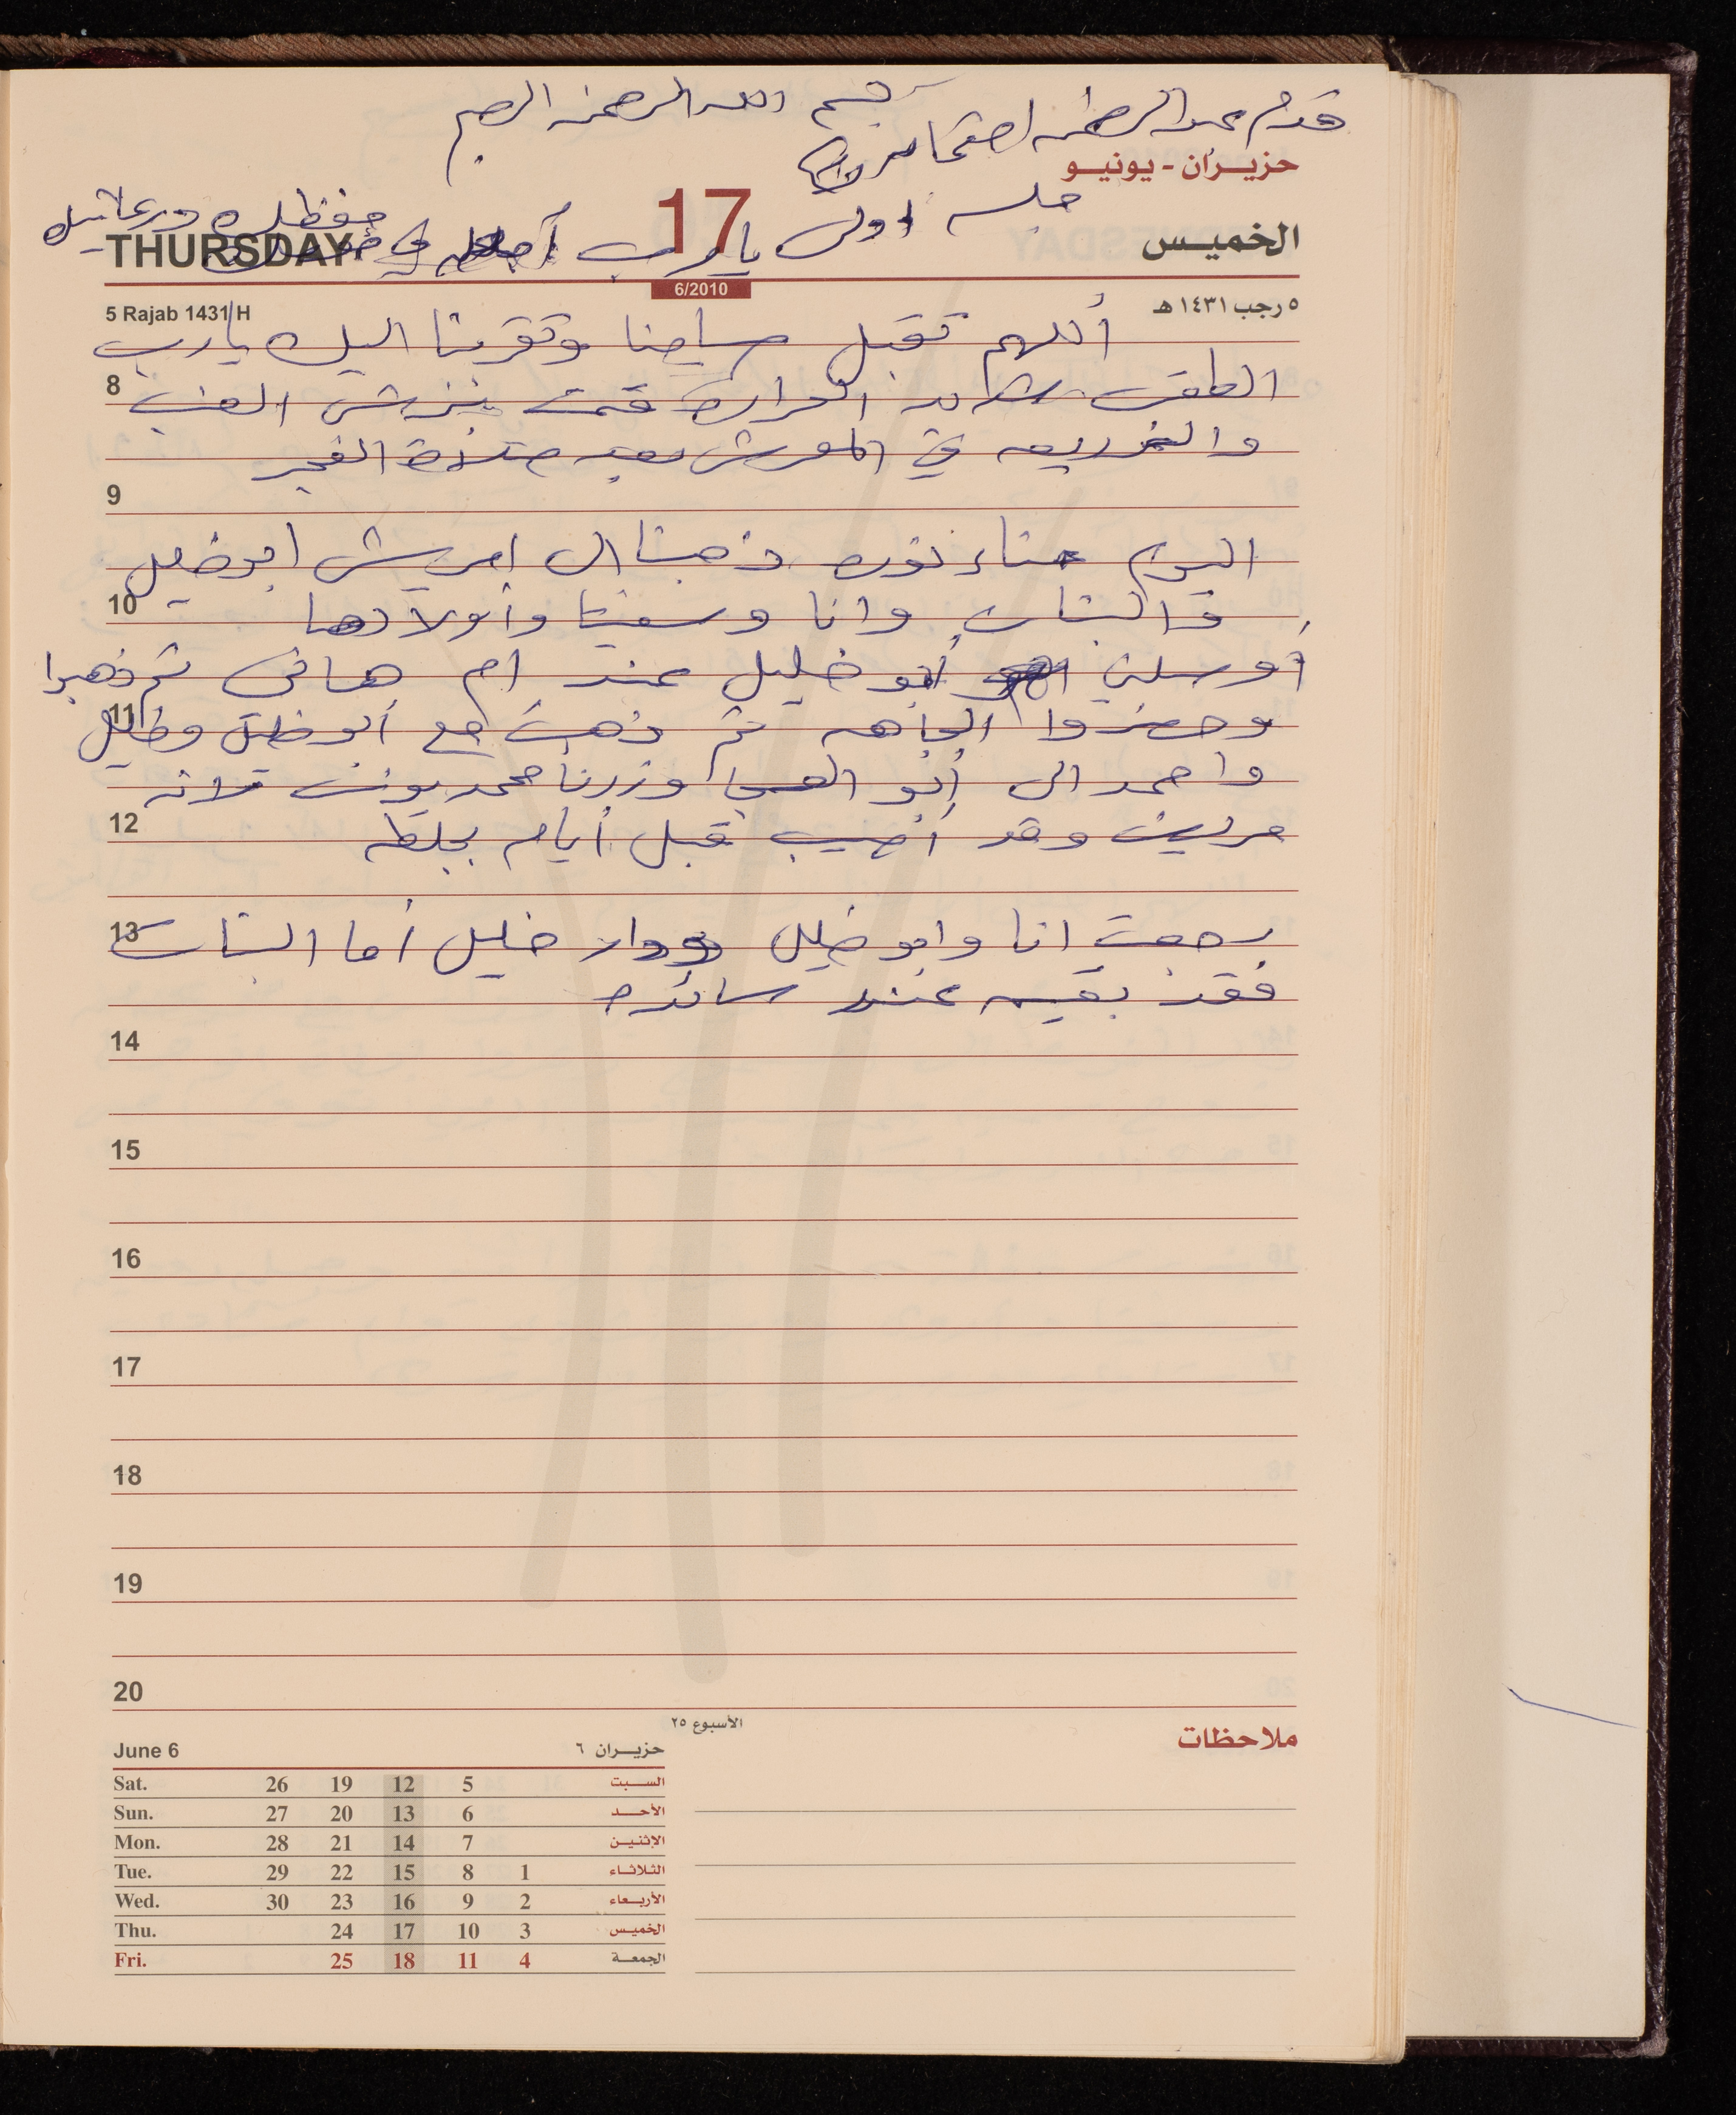 بسم الله الرحمن الرحيم
قدم عبد الرحمن امتحانين
حزيران - يونيو
جلسه اولى يارب في حفظك ورعايتك
17
THURSDAY
الخميس
6/2010
5 Rajab 1431 H
٥ رجب ١٤٣١ هـ
أللهم تقبل صيامنا وتقربنا اليك يارب
8
الطقس شديد الحراره قمت برش العنب
والخرريعه في المعرش بعد صلاة الفجر
9
اليوم حناء نوره ذهبنا الى ابو خليل
10
والبنات وانا وسفيتا وأولادها
أوسلني أبو خليل عند ام هاني ثم ذهبوا
11
وحضروا الجاهه ثم ذهبت مع أبو خليل وخليل
واحمد الى أبو العسى وزرنا محمد يونس لانه
12
مريض وقد أصيب قبل أيام بجلطه
13
رجعت انا وابو خليل ودار خليل أما البنات
فقد بقيه عند سائده
14
15
16
17
18
19
20
الأسبوع ٢٥
ملاحظات
June 6 حزيران ٦
Sat. 26 19 12 5 السبت
Sun. 27 20 13 6 الأحد
Mon. 28 21 14 7 الإثنين
Tue. 29 22 15 8 1 الثلاثاء
Wed. 30 23 16 9 2 الأربعاء
Thu. 24 17 10 3 الخميس
Fri. 25 18 11 4 الجمعة